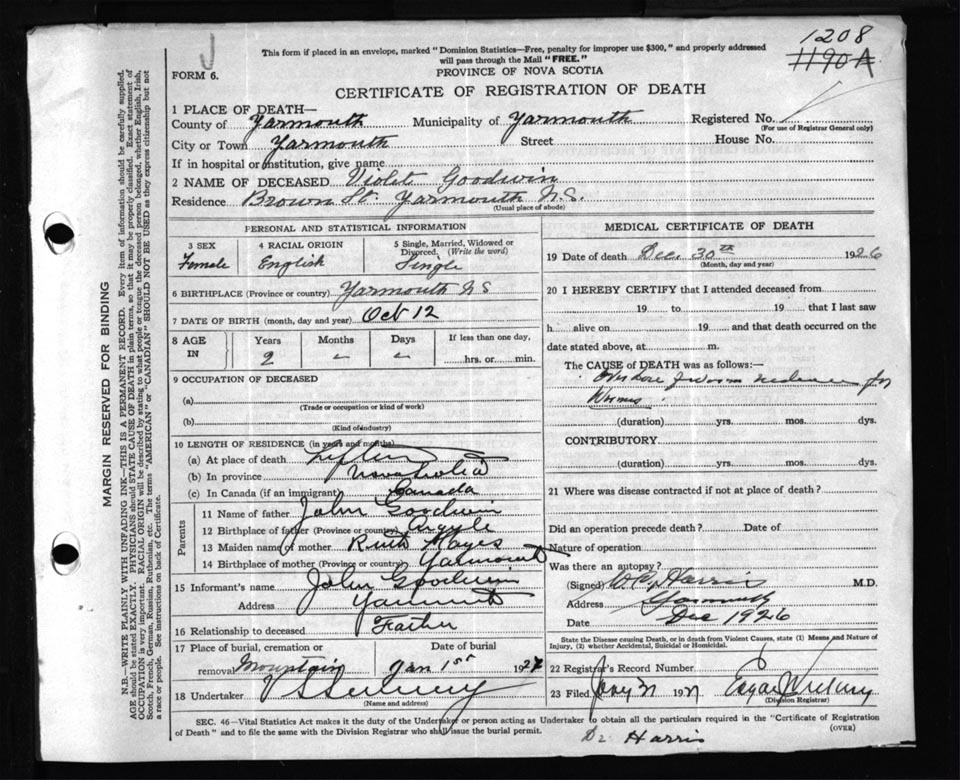 1208
1190 A
This form if placed in an envelope, marked "Dominion Statistics—Free, penalty for improper use $300," and properly addressed
will pass through the Mail "FREE."
FORM 6.
PROVINCE OF NOVA SCOTIA
CERTIFICATE OF REGISTRATION OF DEATH
1 PLACE OF DEATH—
County of Yarmouth Municipality of Yarmouth Registered No.
(For use of Registrar General only)
City or Town Yarmouth Street House No.
If in hospital or institution, give name
2 NAME OF DECEASED Violet Goodwin
Residence Brown St. Yarmouth N.S.
(Usual place of abode)
PERSONAL AND STATISTICAL INFORMATION
3 SEX 4 RACIAL ORIGIN 5 Single, Married, Widowed or Divorced. (Write the word)
Female English Single
6 BIRTHPLACE (Province or country) Yarmouth N S
7 DATE OF BIRTH (month, day and year) Oct 12
8 AGE IN Years Months Days If less than one day,
2 hrs. or min.
9 OCCUPATION OF DECEASED
(a)
(Trade or occupation or kind of work)
(b)
(Kind of industry)
10 LENGTH OF RESIDENCE (in years and months)
(a) At place of death
(b) In province
(c) In Canada (if an immigrant) Canada
Parents
11 Name of father John Goodwin
12 Birthplace of father (Province or country) Argyle
13 Maiden name of mother Ruth Hayes
14 Birthplace of mother (Province or country)
15 Informant's name John Goodwin
Address
16 Relationship to deceased Father
17 Place of burial, cremation or removal Mountain Date of burial Jan 1st 1927
18 Undertaker
(Name and address)
MEDICAL CERTIFICATE OF DEATH
19 Date of death Dec. 30th 1926
(Month, day and year)
20 I HEREBY CERTIFY that I attended deceased from
19 to 19 that I last saw
h alive on 19 and that death occurred on the
date stated above, at m.
The CAUSE OF DEATH was as follows:—
for
Worms
(duration) yrs. mos. dys.
CONTRIBUTORY
(duration) yrs. mos. dys.
21 Where was disease contracted if not at place of death?
Did an operation precede death? Date of
Nature of operation
Was there an autopsy?
(Signed) Harris M.D.
Address Yarmouth
Date Dec 1926
State the Disease causing Death, or in death from Violent Causes, state (1) Means and Nature of
Injury, (2) whether Accidental, Suicidal or Homicidal.
22 Registrar's Record Number
23 Filed 19
(Division Registrar)
SEC. 46—Vital Statistics Act makes it the duty of the Undertaker or person acting as Undertaker to obtain all the particulars required in the "Certificate of Registration
of Death" and to file the same with the Division Registrar who shall issue the burial permit.
(OVER)
Dr Harris
MARGIN RESERVED FOR BINDING
N.B.—WRITE PLAINLY WITH UNFADING INK—THIS IS A PERMANENT RECORD. Every item of information should be carefully supplied.
AGE should be stated EXACTLY. PHYSICIANS should STATE CAUSE OF DEATH in plain terms, so that it may be properly classified. Exact statement of
OCCUPATION is very important. RACIAL ORIGIN will be described by stating to what people or tongue the deceased person belonged, whether English, Irish,
Scotch, French, German, Russian, Ruthenian, etc. The terms "AMERICAN" or "CANADIAN" SHOULD NOT BE USED as they express citizenship but not
a race or people. See instructions on back of Certificate.